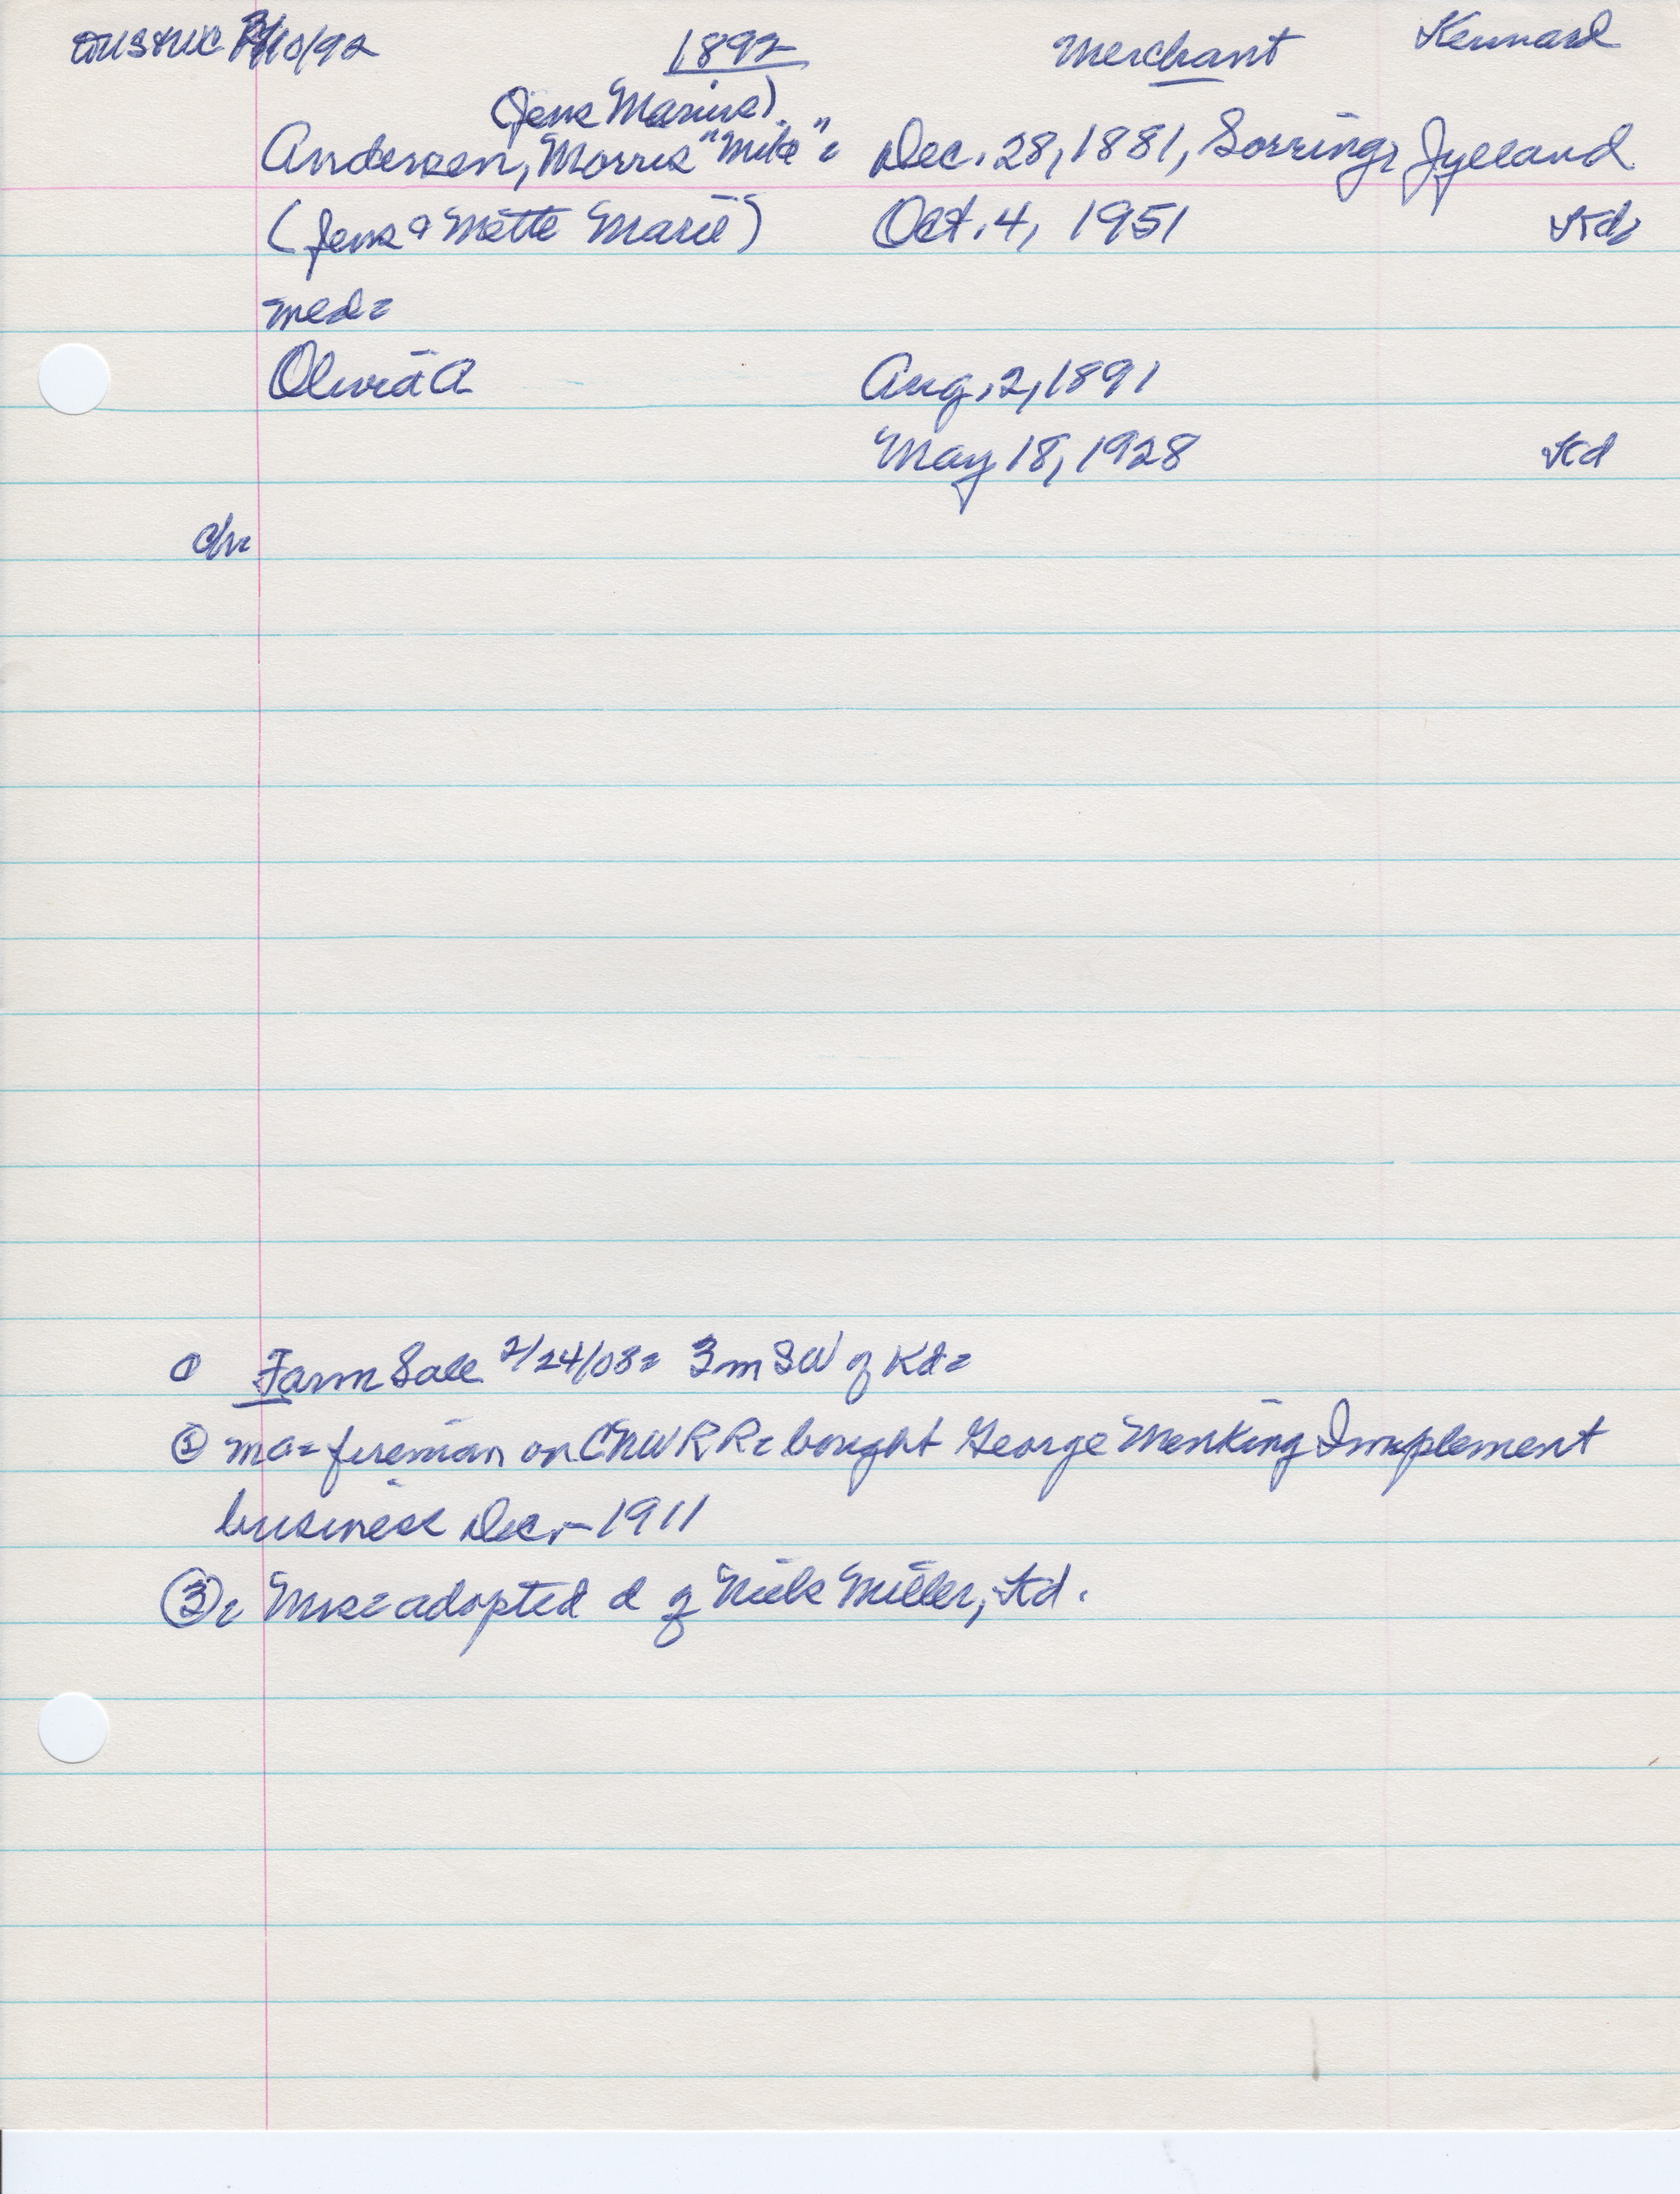 3/10/92 1892 Merchant Kennard
(Jens Marius)
Andersen, Morris "Mike"= Dec. 28, 1881, Sorring, Jylland
(Jens & Mette Marie) Oct. 4, 1951 Kd=
med=
Olivia A Aug. 2, 1891
May 18, 1928 Kd
ch=
① Farm Sale 2/24/08= 3m SW of Kd=
② ma= fireman on CNWRR= bought George Menking Implement
business Dec.-1911
③= Mrs= adopted d of Niels Miller, Kd.